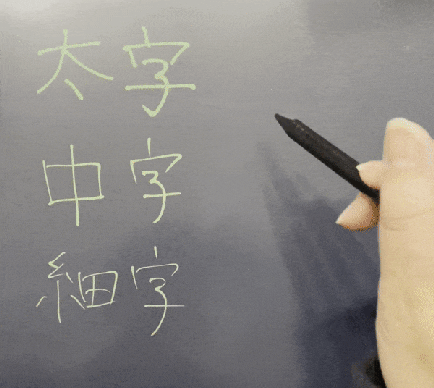 太字
中字
細字